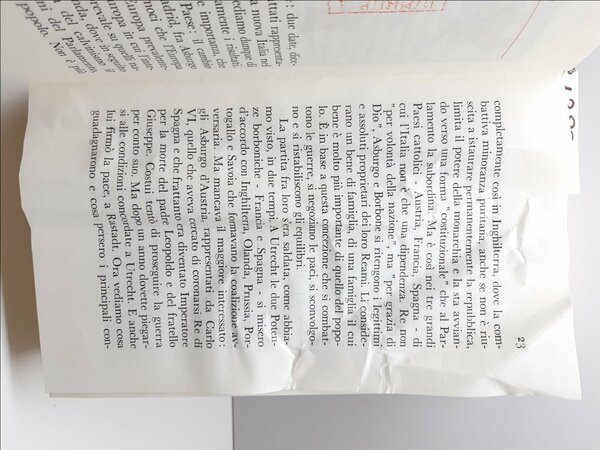 : due date, die-
attati rappresenta-
a nuova Italia nel
ediamo dunque di
i risultati
importanza, che
Paese: il cambio
adrid, fra Asburgo
noci che l'Europa
Europa prevalente-
uropa in cui l'inte-
revale su quelli na-
anda, dove in seguito
a del calvinismo
ni del Parlamento
popolo. Non è più
23
completamente così in Inghilterra, dove la com-
battiva minoranza puritana, anche se non è riu-
scita a istaurare permanentemente la repubblica,
limita il potere della monarchia e la sta avvian-
do verso una forma "costituzionale" che al Par-
lamento la subordina. Ma è così nei tre grandi
Paesi cattolici - Austria, Francia, Spagna - di
cui l'Italia non è che una dipendenza. Re non
"per volontà della nazione", ma "per grazia di
Dio", Asburgo e Borbone si ritengono i legittimi
e assoluti proprietari dei loro Reami. Li conside-
rano un bene di famiglia, di una famiglia il cui
bene è molto più importante di quello del popo-
lo. È in base a questa concezione che si combat-
tono le guerre, si negoziano le paci, si sconvolgo-
no e si ristabiliscono gli equilibri.
La partita fra loro s'era saldata, come abbia-
mo visto, in due tempi. A Utrecht le due Poten-
ze borboniche - Francia e Spagna - si misero
d'accordo con Inghilterra, Olanda, Prussia, Por-
togallo e Savoia che formavano la coalizione av-
versaria. Ma mancava il maggiore interessato:
gli Asburgo d'Austria, rappresentati da Carlo
VI, quello che aveva cercato di coronarsi Re di
Spagna e che frattanto era diventato Imperatore
per la morte del padre Leopoldo e del fratello
Giuseppe. Costui tentò di proseguire la guerra
per conto suo. Ma dopo un anno dovette piegar-
si alle condizioni concordate a Utrecht. E anche
lui firmò la pace, a Rastadt. Ora vediamo cosa
guadagnarono e cosa persero i principali con-